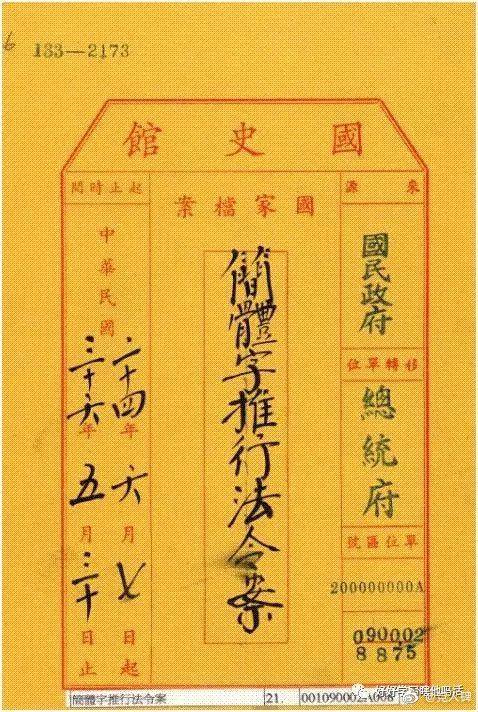 6
133—2173
國史館
來源
國民政府
移轉單位
總統府
單位區號
200000000A
090002
8875
國家檔案
簡體字推行法令案
起止時間
中華民國
二十四年六月七日起
三十六年五月三十日止
簡體字推行法令案
21.
001090002A008
好好学习